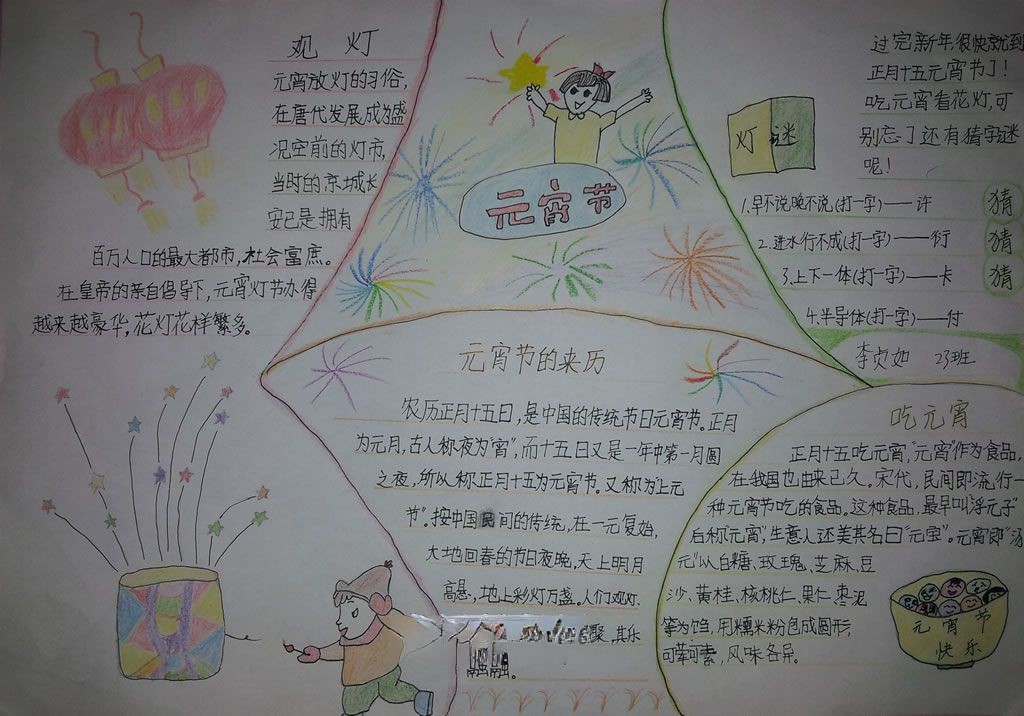 观灯
元宵放灯的习俗,
在唐代发展成为盛
况空前的灯市,
当时的京城长
安已是拥有
百万人口的最大都市,社会富庶。
在皇帝的亲自倡导下,元宵灯节办得
越来越豪华,花灯花样繁多。
元宵节
过完新年,很快就到
正月十五元宵节了!
吃元宵看花灯,可
别忘了还有猜字谜
呢!
灯谜
1.早不说晚不说(打一字)——许
猜
2.进水行不成(打一字)——衍
猜
3.上下一体(打一字)——卡
猜
4.半导体(打一字)——付
李贞如 23班
元宵节的来历
农历正月十五日,是中国的传统节日元宵节。正月
为元月,古人称夜为"宵",而十五日又是一年中第一月圆
之夜,所以称正月十五为元宵节。又称为"上元
节"。按中国民间的传统,在一元复始,
大地回春的节日夜晚,天上明月
高悬,地上彩灯万盏。人们观灯、
聚,其乐
融融。
吃元宵
正月十五吃元宵,"元宵"作为食品,
在我国也由来已久,宋代,民间即流行一
种元宵节吃的食品。这种食品,最早叫"浮元子"
后称"元宵",生意人还美其名曰"元宝"。元宵即"汤
元"以白糖、玫瑰、芝麻、豆
沙、黄桂、核桃仁、果仁、枣泥
等为馅,用糯米粉包成圆形,
可荤可素,风味各异。
元宵节
快乐